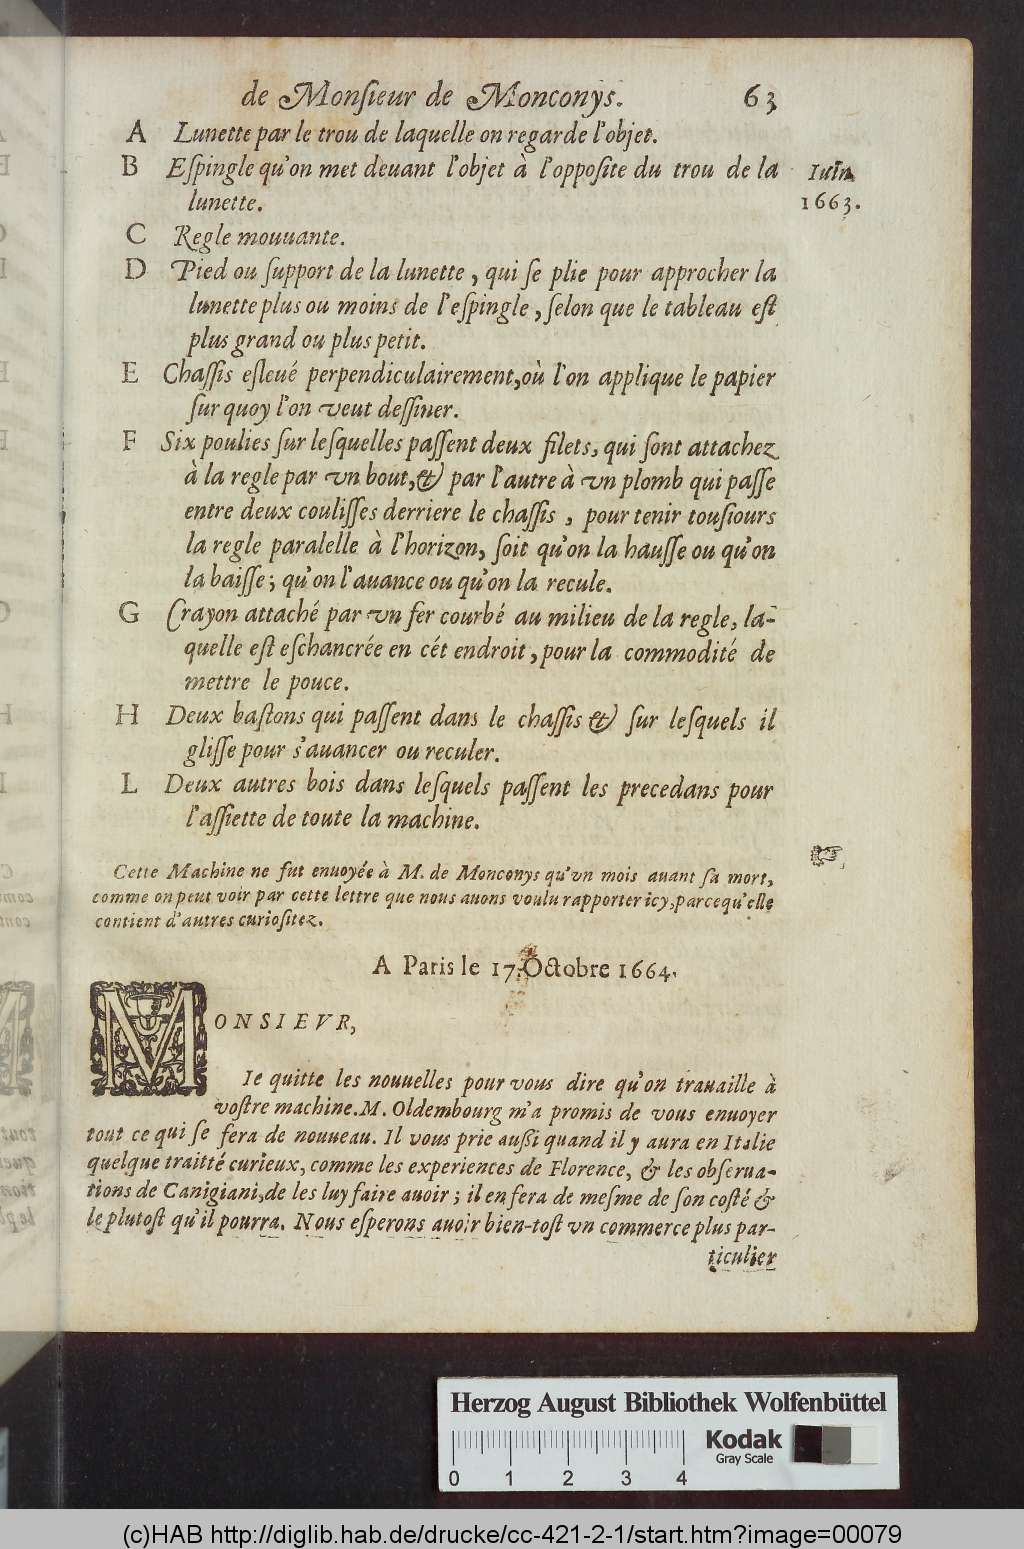 de Monſieur de Monconys. 63
A Lunette par le trou de laquelle on regarde l'objet.
B Eſpingle qu'on met deuant l'objet à l'oppoſite du trou de la
lunette.
Iuin
1663.
C Regle mouuante.
D Pied ou ſupport de la lunette, qui ſe plie pour approcher la
lunette plus ou moins de l'eſpingle, ſelon que le tableau eſt
plus grand ou plus petit.
E Chaſſis eſleué perpendiculairement, où l'on applique le papier
ſur quoy l'on veut deſſiner.
F Six poulies ſur leſquelles paſſent deux filets, qui ſont attachez
à la regle par vn bout, & par l'autre à vn plomb qui paſſe
entre deux couliſſes derriere le chaſſis, pour tenir touſiours
la regle paralelle à l'horizon, ſoit qu'on la hauſſe ou qu'on
la baiſſe; qu'on l'auance ou qu'on la recule.
G Crayon attaché par vn fer courbé au milieu de la regle, la-
quelle eſt eſchancrée en cét endroit, pour la commodité de
mettre le pouce.
H Deux baſtons qui paſſent dans le chaſſis & ſur leſquels il
gliſſe pour s'auancer ou reculer.
L Deux autres bois dans leſquels paſſent les precedans pour
l'aſſiette de toute la machine.
Cette Machine ne fut enuoyée à M. de Monconys qu'vn mois auant ſa mort,
comme on peut voir par cette lettre que nous auons voulu rapporter icy, parcequ'elle
contient d'autres curioſitez.
A Paris le 17. Octobre 1664.
MONSIEVR,
Ie quitte les nouuelles pour vous dire qu'on trauaille à
voſtre machine. M. Oldembourg m'a promis de vous enuoyer
tout ce qui ſe fera de nouueau. Il vous prie auſſi quand il y aura en Italie
quelque traitté curieux, comme les experiences de Florence, & les obſerua-
tions de Canigiani, de les luy faire auoir; il en fera de meſme de ſon coſté &
le plutoſt qu'il pourra. Nous eſperons auoir bien-toſt vn commerce plus par-
ticulier
Herzog August Bibliothek Wolfenbüttel
0 1 2 3 4
Kodak
Gray Scale
(c)HAB http://diglib.hab.de/drucke/cc-421-2-1/start.htm?image=00079